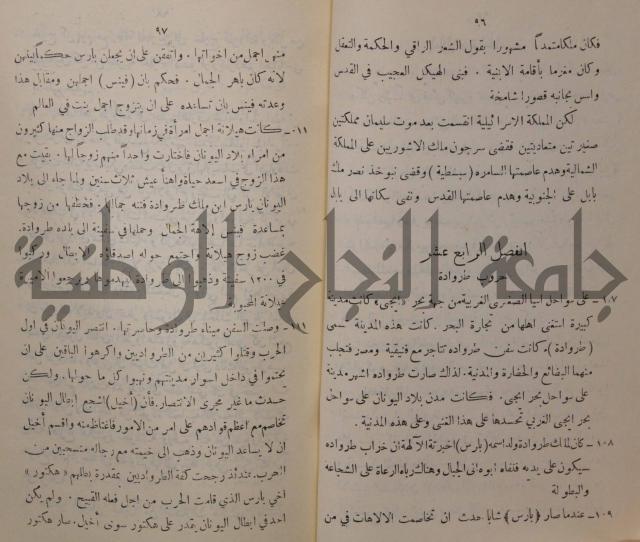 ٩٦
فكان ملكا متمدناً مشهورا بقول الشعر الراقي والحكمة والتعقل
وكان مغرما بأقامة الابنية . فبنى الهيكل العجيب في القدس
واسس بجانبه قصورا شامخة
لكن المملكة الاسرائيلية انقسمت بعد موت سليمان مملكتين
صغيرتين متعاديتين فقضى سرجون ملك الاشوريين على المملكة
الشمالية وهدم عاصمتها السامره (سبسطية) وقضى نبوخذ نصر ملك
بابل على الجنوبية وهدم عاصمتها القدس ونفى سكانها الى بابل
الفصل الرابع عشر
حروب طروادة
١٠٧ – على سواحل اسيا الصغرى الغربية من جهة بحر (ايجى) كانت مدينة
كبيرة استغنى اهلها من تجارة البحر . كانت هذه المدينة تسمى
(طروادة) . كانت سفن طرواده تتاجر مع فنيقية ومصر فتجلب
منهما البضائع والحضارة والمدنية . لذلك صارت طرواده اشهر مدينة
على سواحل بحر ايجى . فكانت مدن بلاد اليونان على سواحل
بحر ايجى الغربي تحسدها على هذا الغنى وعلى هذه المدنية .
١٠٨ – كان لملك طروادة ولد اسمه (بارس) اخبرته الآلهة ان خراب طرواده
سيكون على يديه فنفاه ابوه الى الجبال وهناك رباه الرعاة على الشجاعة
والبطولة
١٠٩ – عندما صار (بارس) شابا حدث ان تخاصمت الالاهات في من
٩٧
منهن اجمل من اخواتها . واتفقن على ان يجعلن بارس حكما بينهن
لانه كان باهر الجمال . فحكم بان (فينس) اجملهن ومقابل هذا
وعدته فينس بان تساعده على ان يتزوج اجمل بنت في العالم
كانت هيلانة اجمل امرأة في زمانها وقد طلب الزواج منها كثيرون
من امراء بلاد اليونان فاختارت واحداً منهم زوجاً لها . بقيت مع
هذا الزوج في اسعد حياة واهنأ عيش ثلاث سنين ولما جاء الى بلاد
اليونان بارس ابن ملك طروادة فتنه جمالها . فخطفها من زوجها
بمساعدة فينس إلاهة الجمال وحملها في سفينة الى بلده طروادة .
غضب زوج هيلانة واجتمع حوله اصدقاؤه الابطال وركبوا
في ١٢٠٠ سفينة وذهبوا الى طروادة ليهدموها ويرجعوا الاميرة
هيلانة المحبوبة
وصلت السفن ميناء طروادة وحاصرتها . انتصر اليونان في اول
الحرب وقتلوا كثيرين من الطرواديين واكرهوا الباقين على ان
يحتموا في داخل اسوار مدينتهم ونهبوا كل ما حولها . ولكن
حدث ما غير مجرى الانتصار . فأن (أخيل) اشجع ابطال اليونان
تخاصم مع اعظم قوادهم على امر من الامور فاغتاظ منه واقسم أخيل
ان لا يساعد اليونان وذهب الى خيمته مع رجاله منسحبين من
الحرب . عندئذ رجحت كفة الطرواديين بمقدرة بطلهم «هكتور»
اخي بارس الذي قامت الحرب من اجل فعله القبيح . ولم يكن
احد في ابطال اليونان يقدر على هكتور سوى أخيل . صار هكتور
جامعة النجاح الوطنية